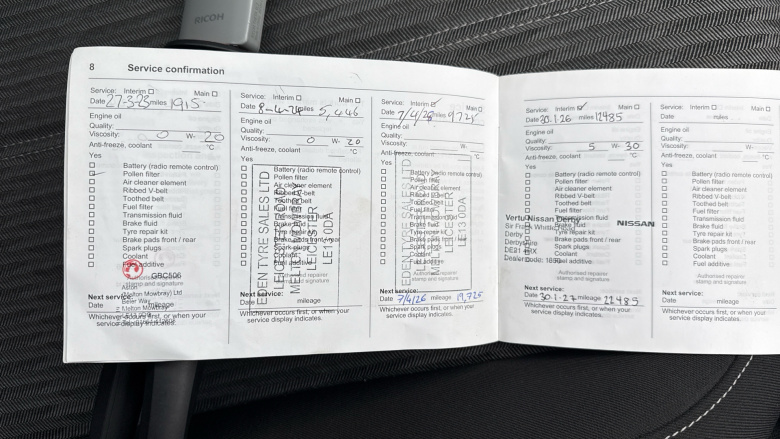 RICOH
8 Service confirmation
Service: Interim Main
Date 27-3-23 miles 1915
Engine oil
Quality:
Viscosity: 0 W- 20
Anti-freeze, coolant °C
Yes
Battery (radio remote control)
Pollen filter
Air cleaner element
Ribbed V-belt
Toothed belt
Fuel filter
Transmission fluid
Brake fluid
Tyre repair kit
Brake pads front / rear
Spark plugs
Coolant
Fuel additive
GBC506
Authorised repairer
stamp and signature
(Melton Mowbray) Ltd
Next service:
Date mileage
Melton Mowbray
Whichever occurs first, or when your
service display indicates.
Service: Interim Main
Date 8-4-24 miles 5,446
Engine oil
Quality:
Viscosity: 0 W- 20
Anti-freeze, coolant °C
Yes
Battery (radio remote control)
Pollen filter
Air cleaner element
Ribbed V-belt
Toothed belt
Fuel filter
Transmission fluid
Brake fluid
Tyre repair kit
Brake pads front / rear
Spark plugs
Coolant
Fuel additive
EDEN TYRE SALES LTD
LEICESTER
LE13 0DA
Next service:
Date mileage
Whichever occurs first, or when your
service display indicates.
Service: Interim Main
Date 7/4/25 miles 9725
Engine oil
Quality:
Viscosity: W-
Anti-freeze, coolant °C
Yes
Battery (radio remote control)
Pollen filter
Air cleaner element
Ribbed V-belt
Toothed belt
Fuel filter
Transmission fluid
Brake fluid
Tyre repair kit
Brake pads front / rear
Spark plugs
Coolant
Fuel additive
EDEN TYRE SALES LTD
LEICESTER
LE13 0DA
Authorised repairer
stamp and signature
Next service:
Date 7/4/26 mileage 19,725
Whichever occurs first, or when your
service display indicates.
Service: Interim Main
Date 30.1.26 miles 12485
Engine oil
Quality:
Viscosity: 5 W- 30
Anti-freeze, coolant °C
Yes
Battery (radio remote control)
Pollen filter
Air cleaner element
Ribbed V-belt
Toothed belt
Fuel filter
Transmission fluid
Brake fluid
Tyre repair kit
Brake pads front / rear
Spark plugs
Coolant
Fuel additive
Vertu Nissan Derby
Sir Frank Whittle
Derby
Derbyshire
DE21
Dealer code:
NISSAN
Authorised repairer
stamp and signature
Next service:
Date 30-1-27 mileage 22485
Whichever occurs first, or when your
service display indicates.
Service: Interim Main
Date miles
Engine oil
Quality:
Viscosity: W-
Anti-freeze, coolant
Yes
Battery (radio remote control)
Pollen filter
Air cleaner element
Ribbed V-belt
Toothed belt
Fuel filter
Transmission fluid
Brake fluid
Tyre repair kit
Brake pads front / rear
Spark plugs
Coolant
Fuel additive
Authorised repairer
stamp and signature
Next service:
Date mileage
Whichever occurs first, or when your
service display indicates.